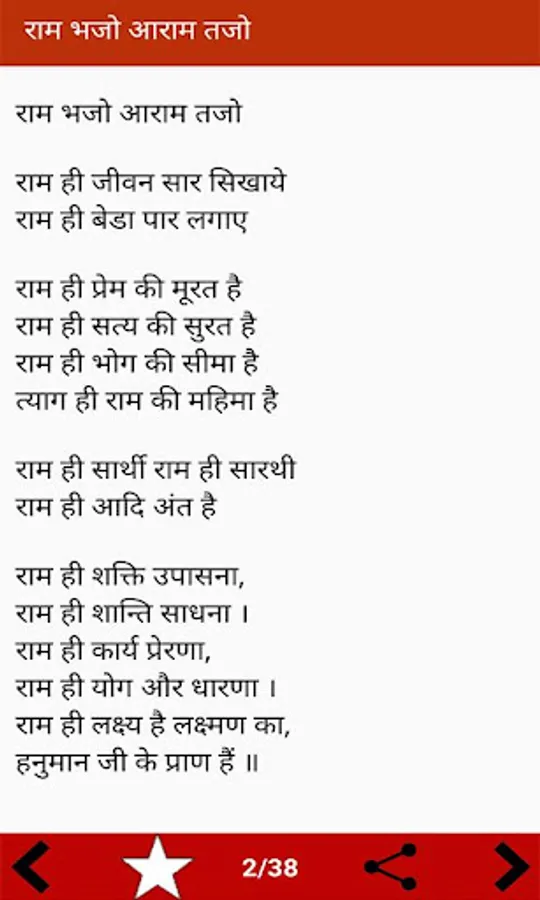 राम भजो आराम तजो
राम भजो आराम तजो
राम ही जीवन सार सिखाये
राम ही बेडा पार लगाए
राम ही प्रेम की मूरत है
राम ही सत्य की सुरत है
राम ही भोग की सीमा है
त्याग ही राम की महिमा है
राम ही सार्थी राम ही सारथी
राम ही आदि अंत है
राम ही शक्ति उपासना,
राम ही शान्ति साधना ।
राम ही कार्य प्रेरणा,
राम ही योग और धारणा ।
राम ही लक्ष्य है लक्ष्मण का,
हनुमान जी के प्राण हैं ॥
2/38